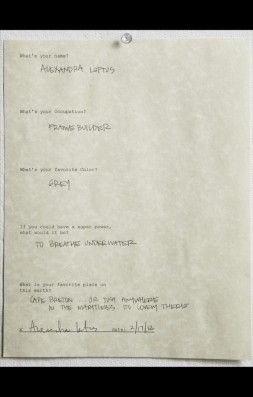 What's your name?
ALEXANDRA LOFTUS
What's your Occupation?
FRAME BUILDER
What's your favorite Color?
GREY
If you could have a super power,
what would it be?
TO BREATHE UNDERWATER
What is your favorite place on
this earth?
CAPE BRETON. OR JUST ANYWHERE
IN THE MARITIMES IS LOVELY THERE
Alexandra Loftus DATE: 2/17/12